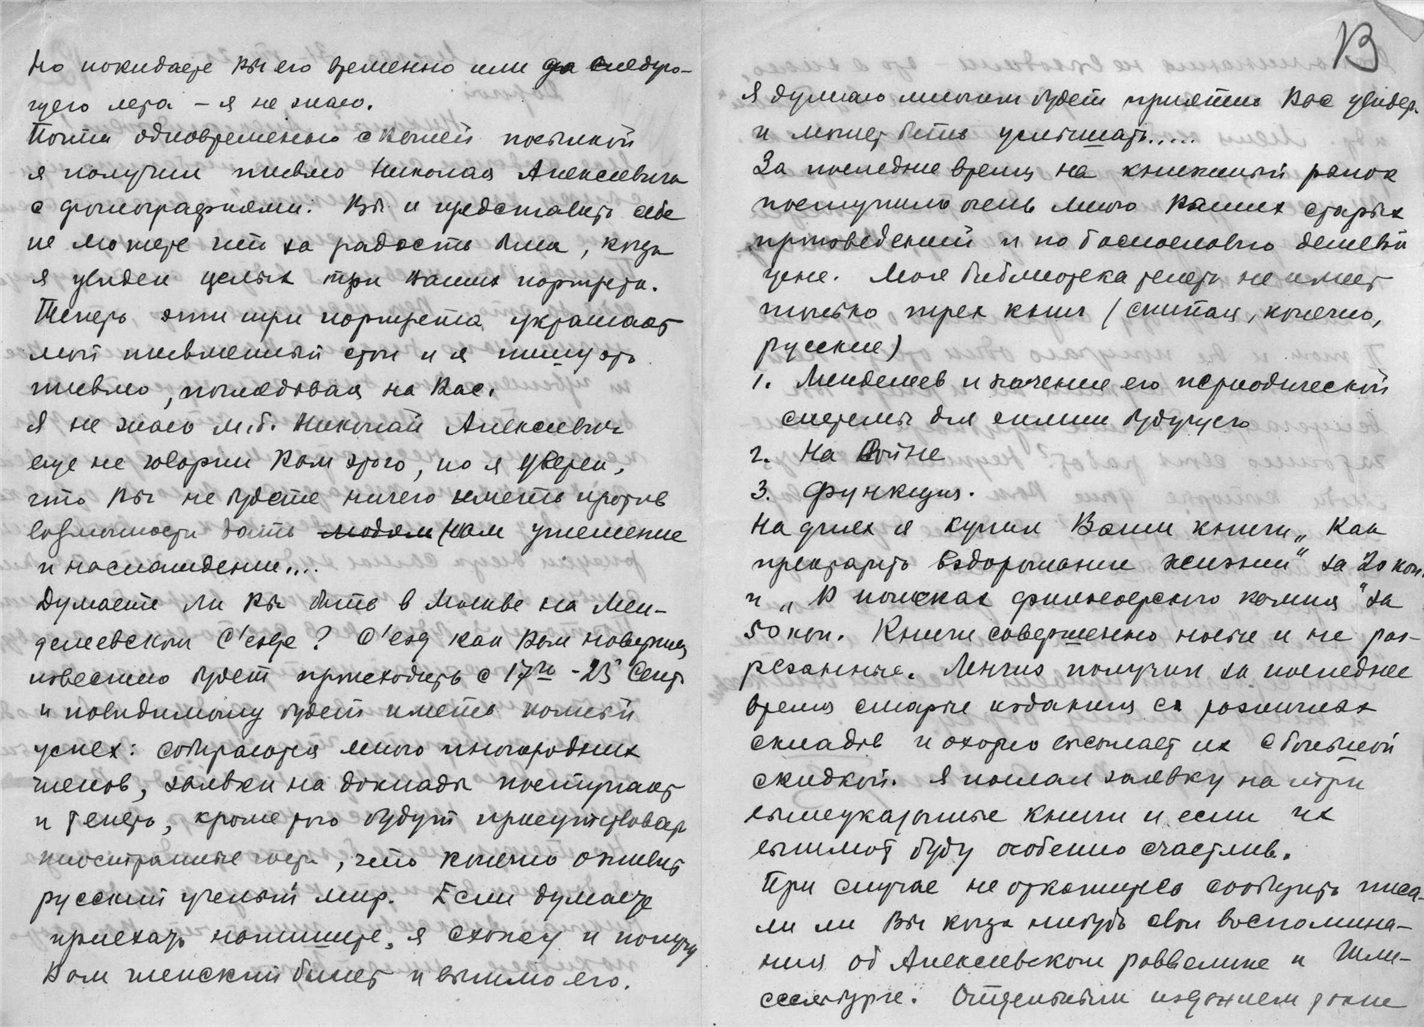 Но покидаете Вы его временно или до следую-
щего лета – я не знаю.
Почти одновременно с Вашей посылкой
я получил письмо Николая Алексеевича
с фотографиями: Вы и представить себе
не можете что за радость была, когда
я увидел целых три Ваших портрета.
Теперь эти три портрета украшают
мой письменный стол и я пишу это
письмо, поглядывая на Вас.
Я не знаю м.б. Николай Алексеевич
еще не говорил Вам этого, но я уверен,
что Вы не будете ничего иметь против
возможности дать людям (нам утешение
и наслаждение....
Думаете ли Вы быть в Москве на Мен-
делеевском С'езде? С'езд как Вам наверно
известно будет происходить с 17го - 23 Сент
и повидимому будет иметь полный
успех: собираются много иногородних
членов, заявки на доклады поступают
и теперь, кроме того будут присутствовать
иностранные гости, что конечно оживит
русский ученый мир. Если думаете
приехать напишите, я схожу и получу
Вам членский билет и вышлю его.
В
Я думаю многим будет приятно Вас увидеть
и может быть услышать.....
За последнее время на книжный рынок
поступило очень много Ваших старых
произведений и по баснословно дешевой
цене. Моя библиотека теперь не имеет
только трех книг (считая, конечно,
русские)
1. Менделеев и значение его периодической
системы для химии будущего
2. На Войне
3. Функция.
На днях я купил Ваши книги „Как
прекратить вздорожание жизни" за 20 коп.
и „В поисках философского камня" за
50 коп. Книги совершенно новые и не раз-
резанные. Ленгиз получил за последнее
время старые издания со различных
складов и охотно высылает их с большой
скидкой. Я послал заявку на три
вышеуказанные книги и если их
вышлют буду особенно счастлив.
При случае не откажитесь сообщить писа-
ли ли Вы когда нибудь свои воспомина-
ния об Алексеевском равелине и Шли-
ссельбурге. Отдельным изданием